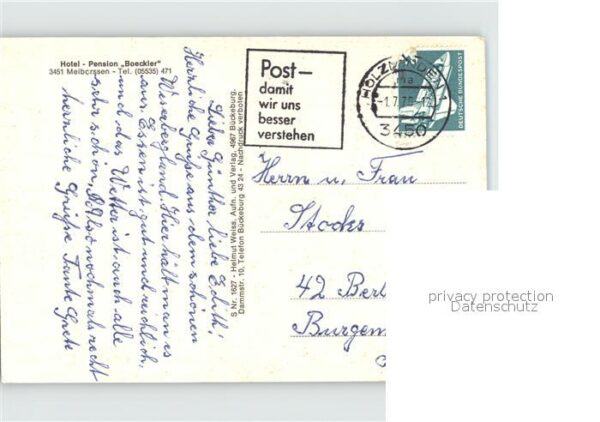 Hotel - Pension „Boeckler"
3451 Meiborssen - Tel. (05535) 471
Lieber Günther, liebe Edith!
Herrliche Grüße aus dem schönen
Weserbergland. Hier hält man es
aus. Essen ist gut und reichlich,
und das Wetter ist auch alle
sehr schön. Also nochmals recht
herrliche Grüße Tante Grete
S Nr. 1627 - Helmut Weiss, Aufn. und Verlag, 4967 Bückeburg,
Dammstr. 10, Telefon Bückeburg 43 24 - Nachdruck verboten
Post—
damit
wir uns
besser
verstehen
HOLZMINDEN 1
-1.7.76
3450
DEUTSCHE BUNDESPOST
Herrn u. Frau
Stocks
42 Berl
Burgem
privacy protection
Datenschutz